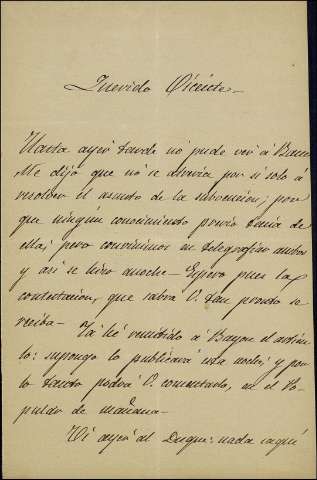 Querido Vicente—
Hasta ayer tarde no pude ver á
Me dijo que no se atrevia por si solo á
resolver el asunto de la subvencion; por
que ningun conocimiento previo tenia de
ella; pero convinimos en telegrafiar ambos
y asi se hizo anoche— Espero pues la
contestacion, que sabrá V. tan pronto se
reciba—
Yá hé remitido á el artícu
lo: supongo lo publicará esta noche; y por
lo tanto podrá V. comentarlo, en el Po-
pular de mañana—
Ví ayer al Duque: nada